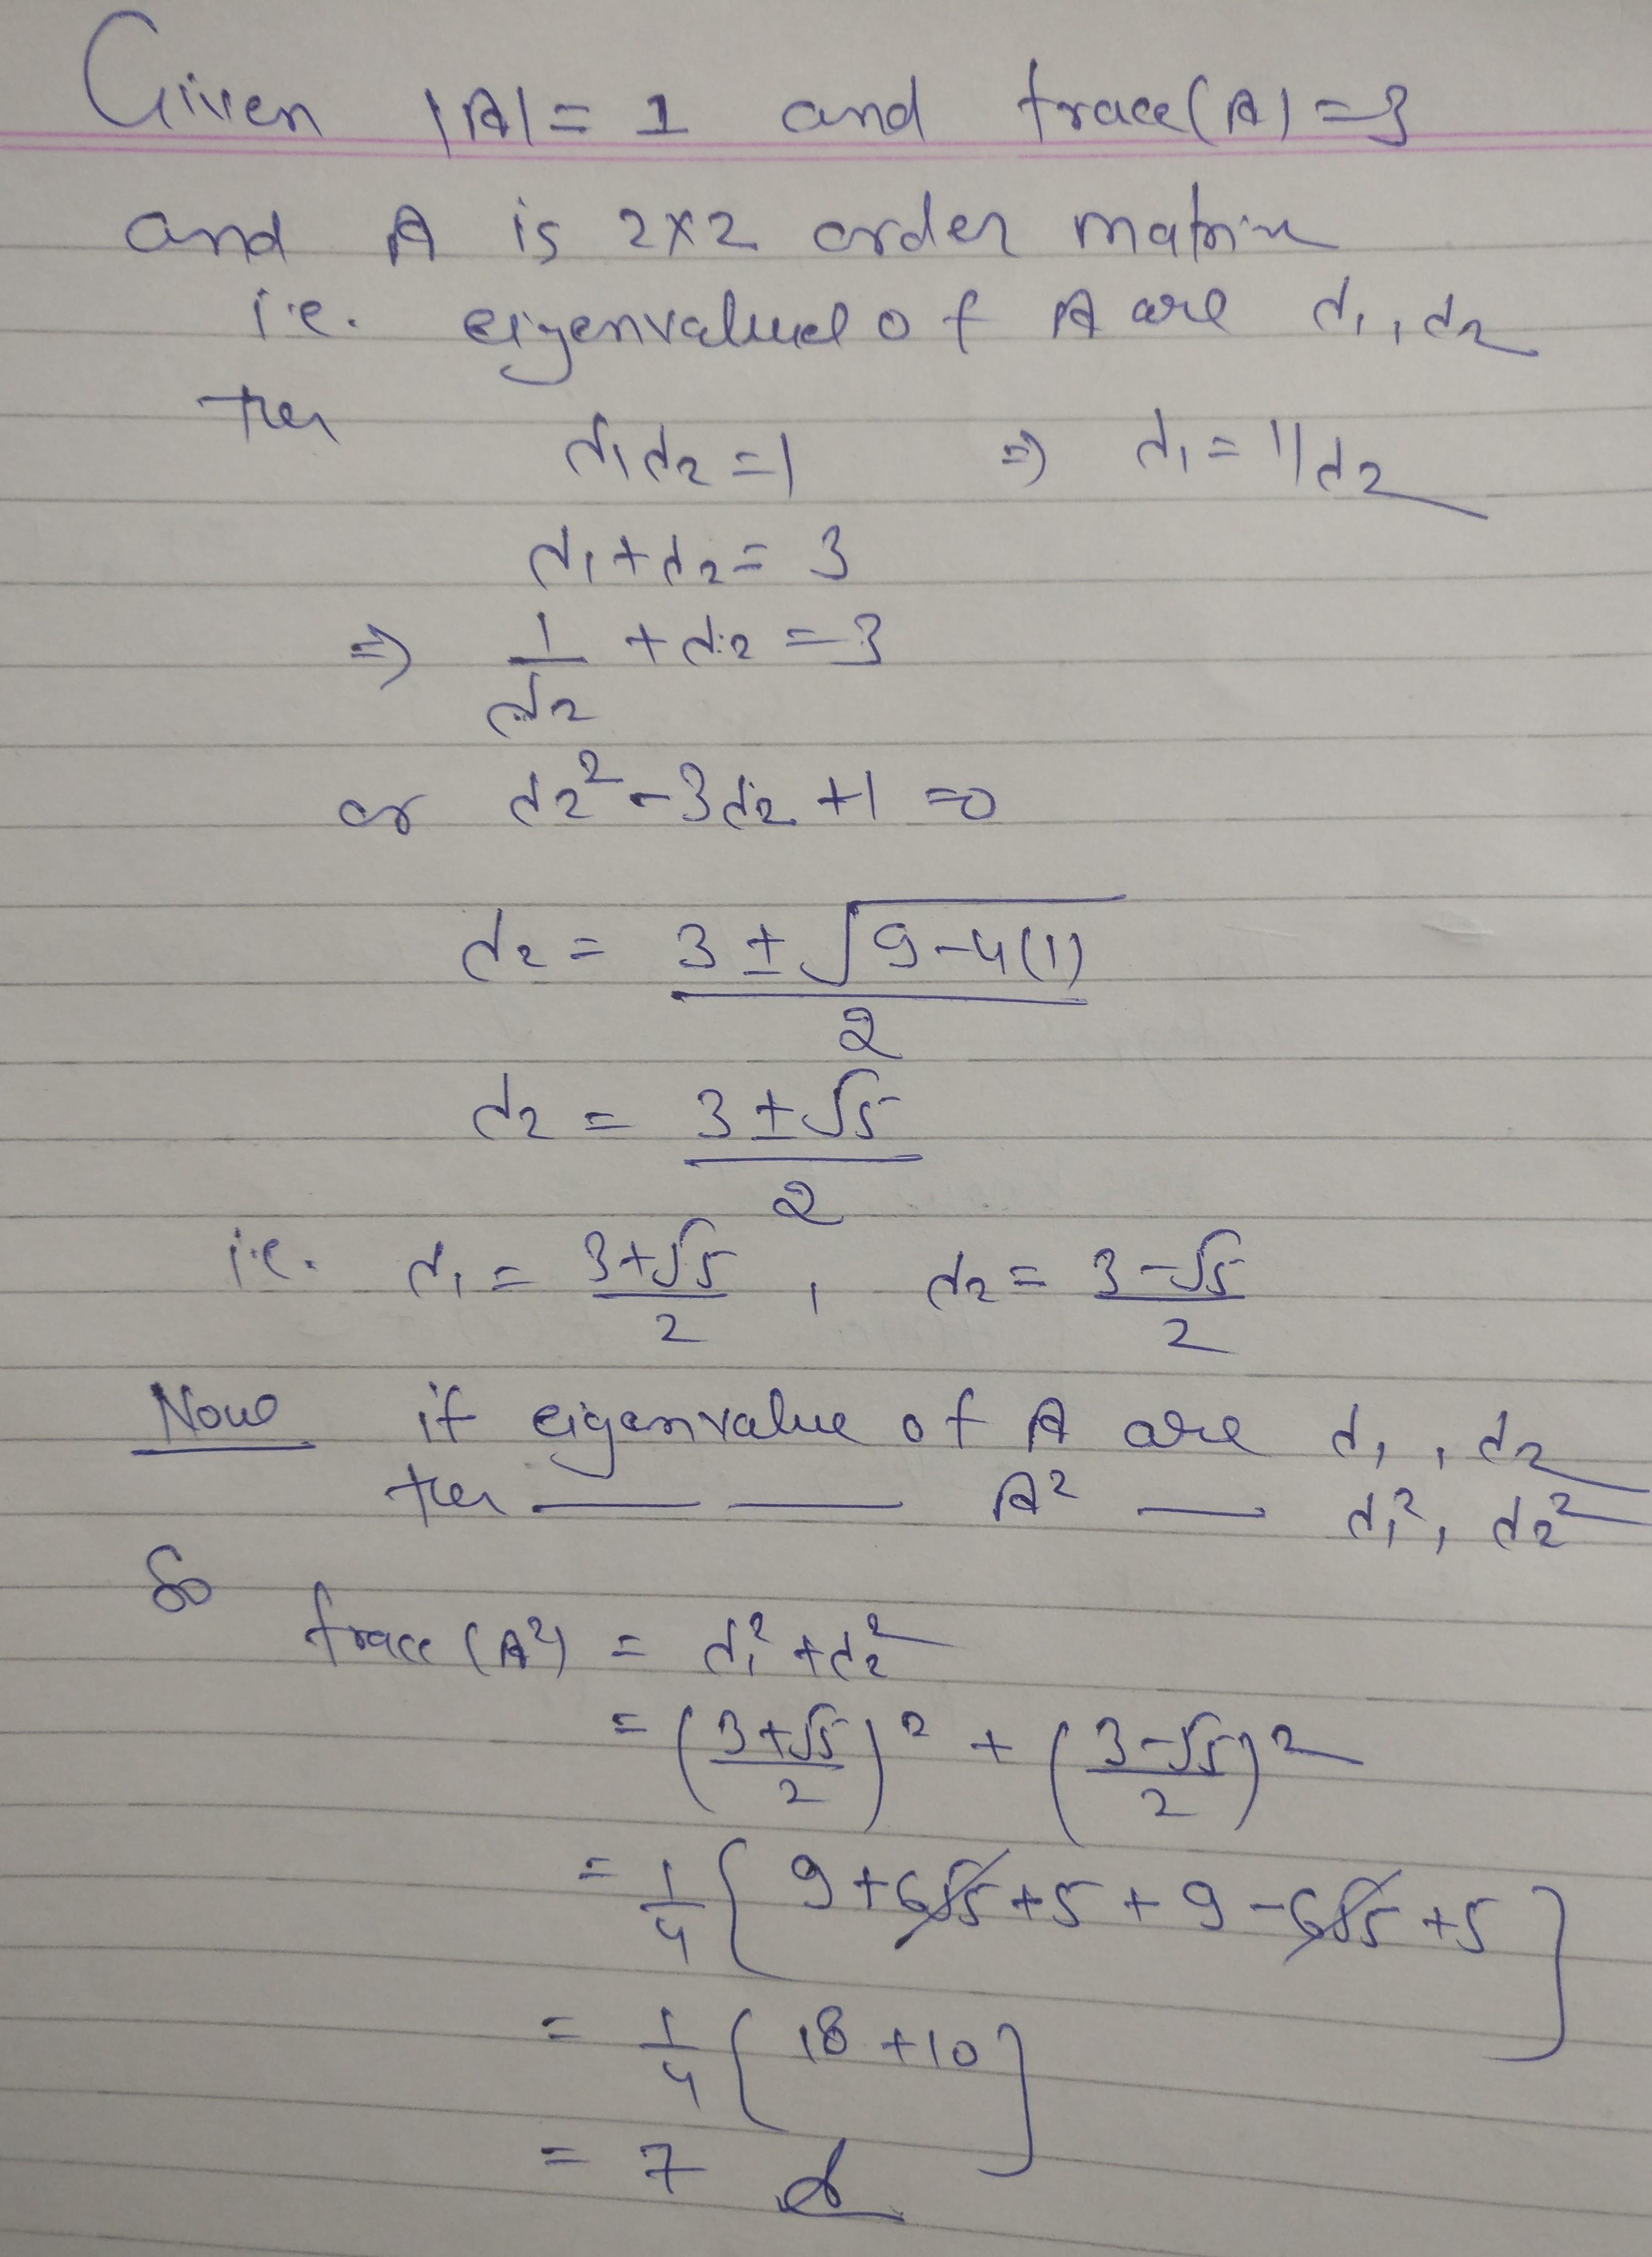 Given |A| = 1 and trace(A) = 3
and A is 2×2 order matrix
i.e. eigenvalued of A are d₁, d₂
then d₁d₂ = 1 ⇒ d₁ = 1/d₂
d₁ + d₂ = 3
⇒ 1/d₂ + d₂ = 3
or d₂² - 3d₂ + 1 = 0
d₂ = (3 ± √(9-4(1)))/2
d₂ = (3 ± √5)/2
i.e. d₁ = (3+√5)/2 , d₂ = (3-√5)/2
Now if eigenvalue of A are d₁, d₂
then — — A² — d₁², d₂²
So
trace(A²) = d₁² + d₂²
= ((3+√5)/2)² + ((3-√5)/2)²
= 1/4 { 9 + 6√5 + 5 + 9 - 6√5 + 5 }
= 1/4 { 18 + 10 }
= 7